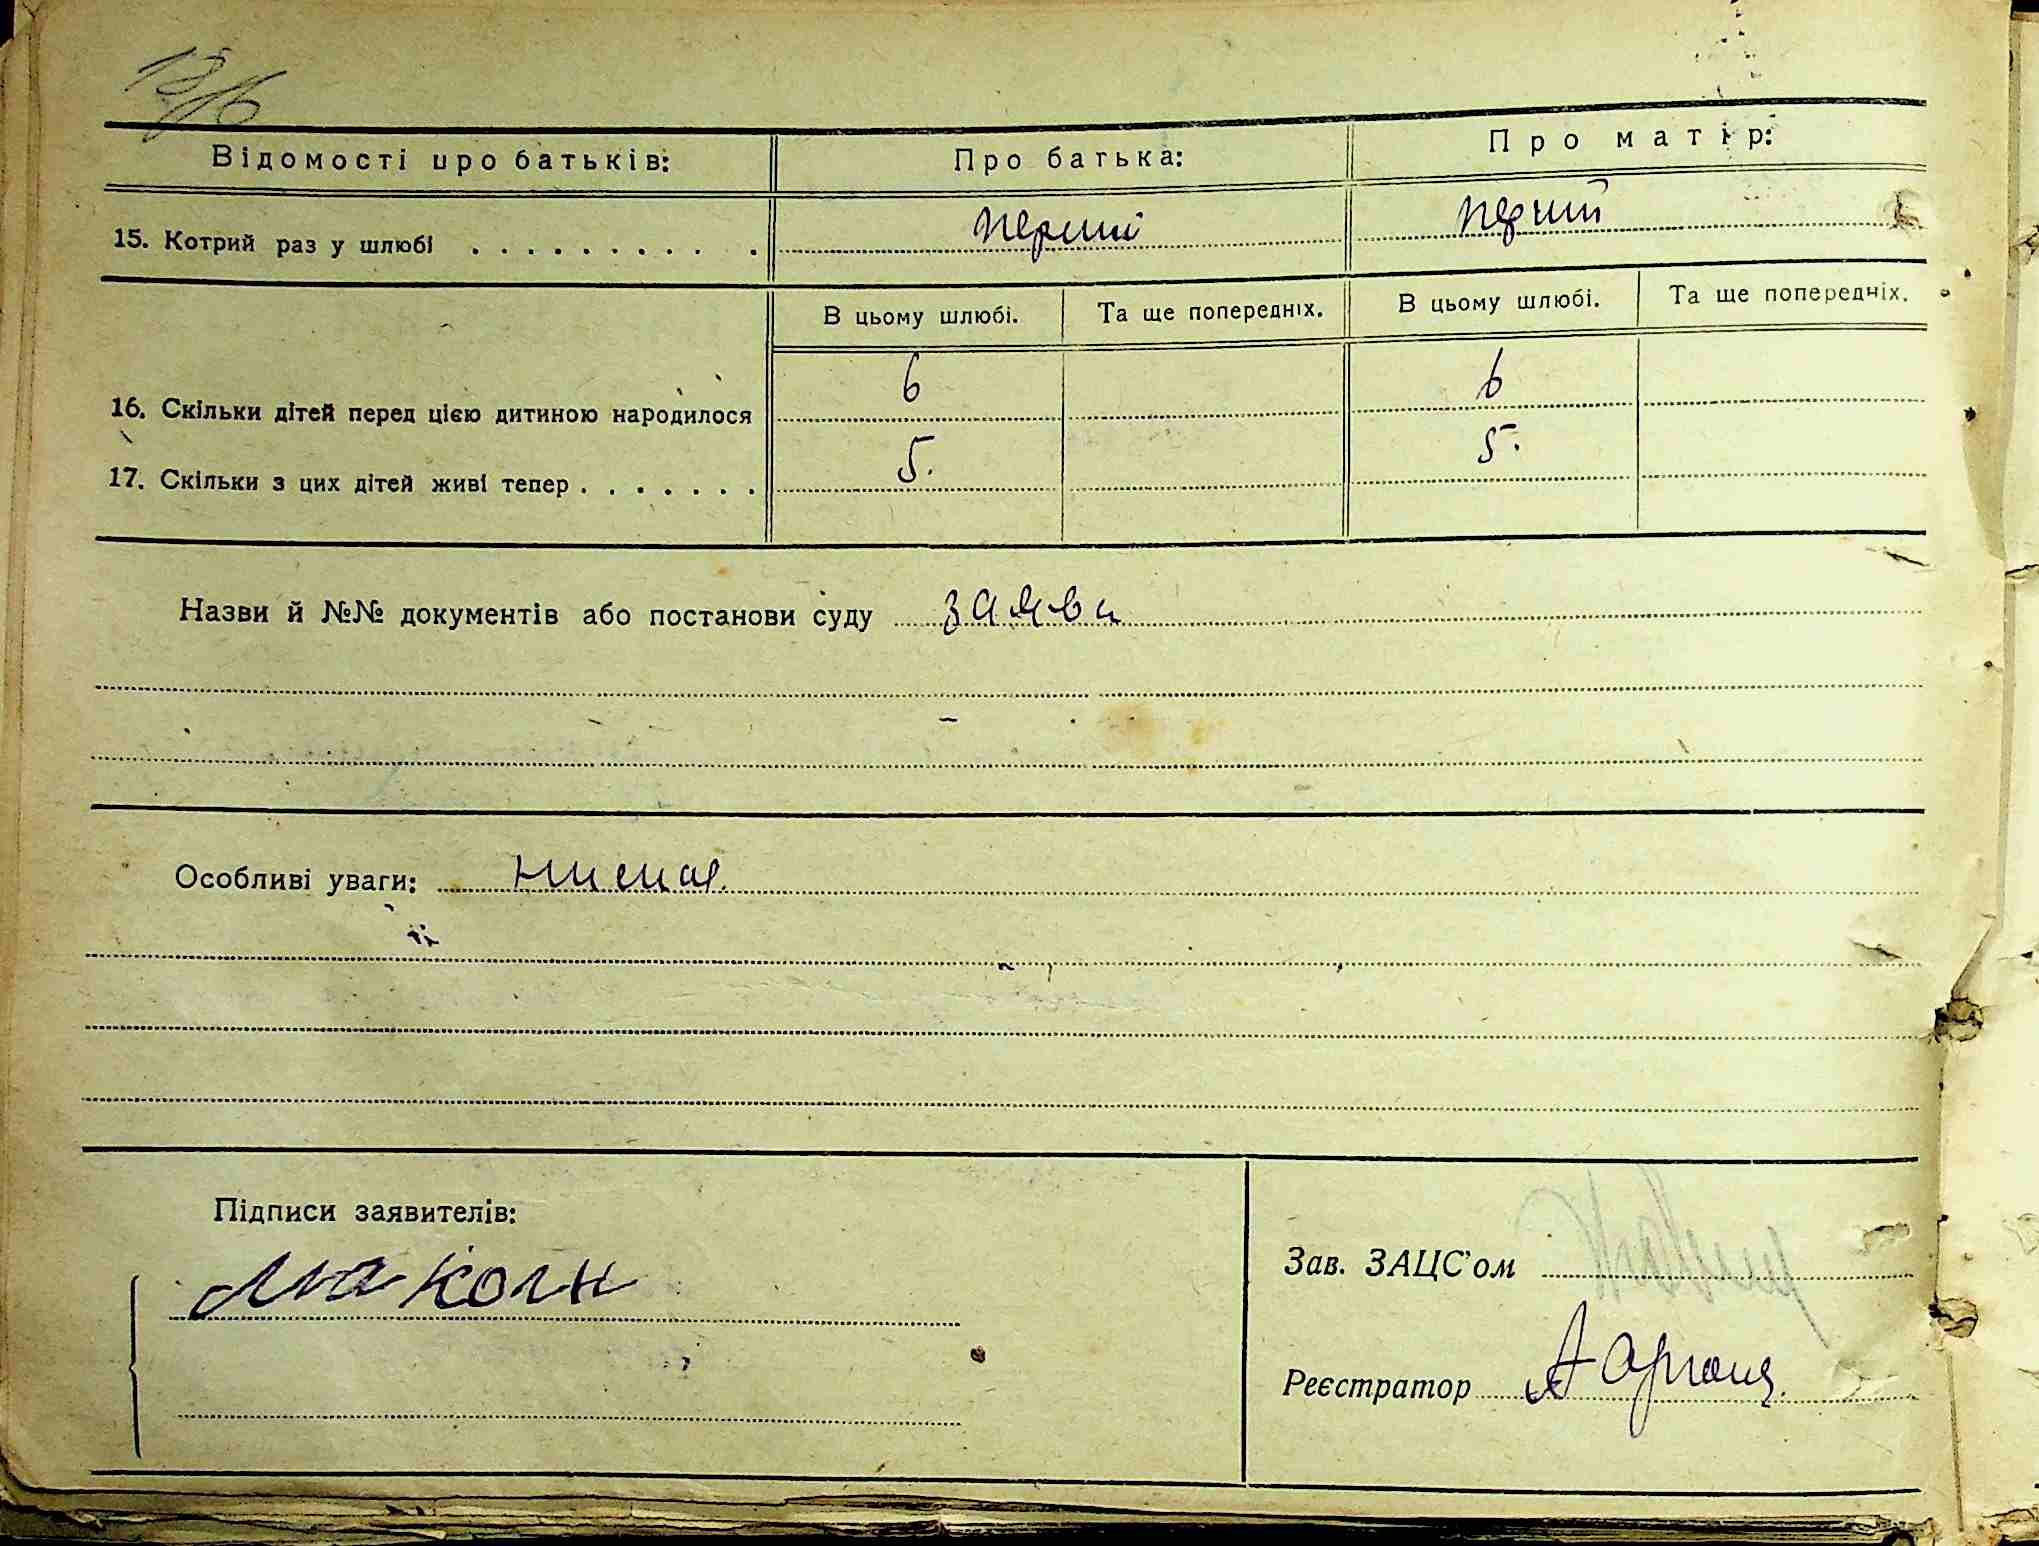 Відомості про батьків: Про батька: Про матір:
15. Котрий раз у шлюбі . . . . . . . . . . перший перший
В цьому шлюбі. Та ще попередніх. В цьому шлюбі. Та ще попередніх.
16. Скільки дітей перед цією дитиною народилося 6 6
17. Скільки з цих дітей живі тепер . . . . . . . 5. 5.
Назви й №№ документів або постанови суду заява
Особливі уваги:
Підписи заявителів:
Зав. ЗАЦС'ом
Реєстратор